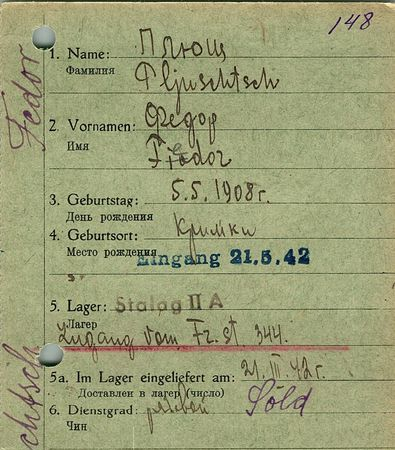 148
1. Name: Плющ
Фамилия Pljuschtsch
2. Vornamen: Федор
Имя Fedor
3. Geburtstag: 5.5.1908 г.
День рождения
4. Geburtsort: Кримки
Место рождения
Eingang 21.5.42
5. Lager: Stalag II A
Лагерь
Zugang vom Fr. St. 344.
5a. Im Lager eingeliefert am: 21. III. 42 г.
Доставлен в лагерь (число)
6. Dienstgrad: рядовой Sold
Чин
Fedor
chtsch